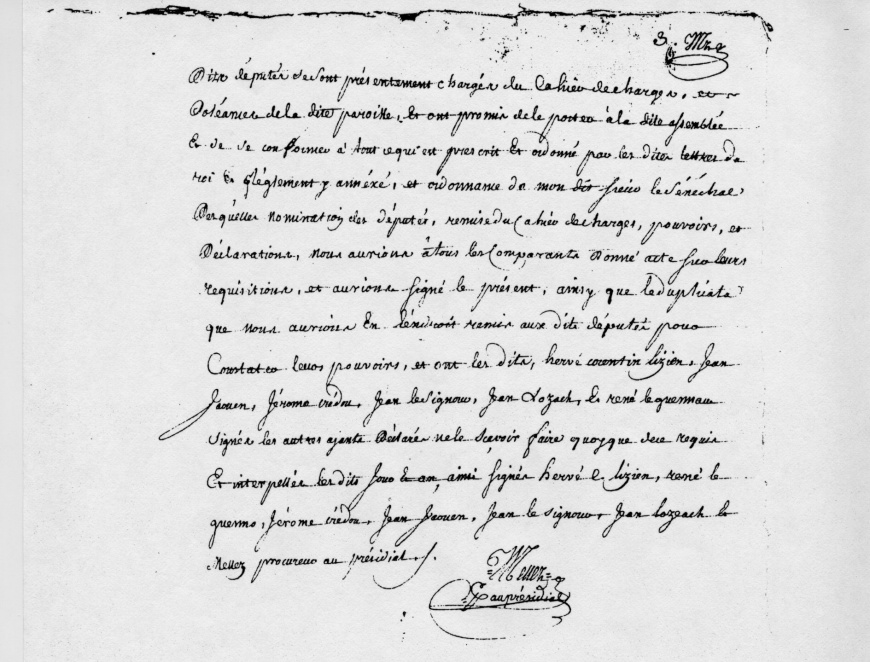 3.
Dits députés se sont présentement chargés du Cahier de charges, et
Doléances de la dite paroisse, Et ont promis de le porter à la dite assemblée
Et de se conformer à tout ce qui est prescrit Et ordonné par les dites lettres du
roi Et Réglement y annéxé, et ordonnance de mon dit sieur le Sénéchal
Desquelles nomination des députés, remise du Cahier de charges, pouvoirs, et
Déclarations, nous aurions à tous les Comparants Donné acte sur leurs
requisitions, et aurions signé le présent, ainsy que le duplicata
que nous aurions En l'endroit remis aux dits députés pour
Constater leurs pouvoirs, et ont les dits, hervé corentin lizien, Jean
Jaouen, Jérome crédou, Jean le Signour, Jean Lozach, Et rené le quennau
signés les autres ajants Déclaré ne le sçavoir faire quoyque de ce requis
Et interpellés les dits Jour Et an, ainsi signés hervé C lizien, rené le
quenno, Jérome crédou, Jean Jaouen, Jean le signour, Jean lozeach Et
Mellez procureur au présidial.
Mellez
au présidial